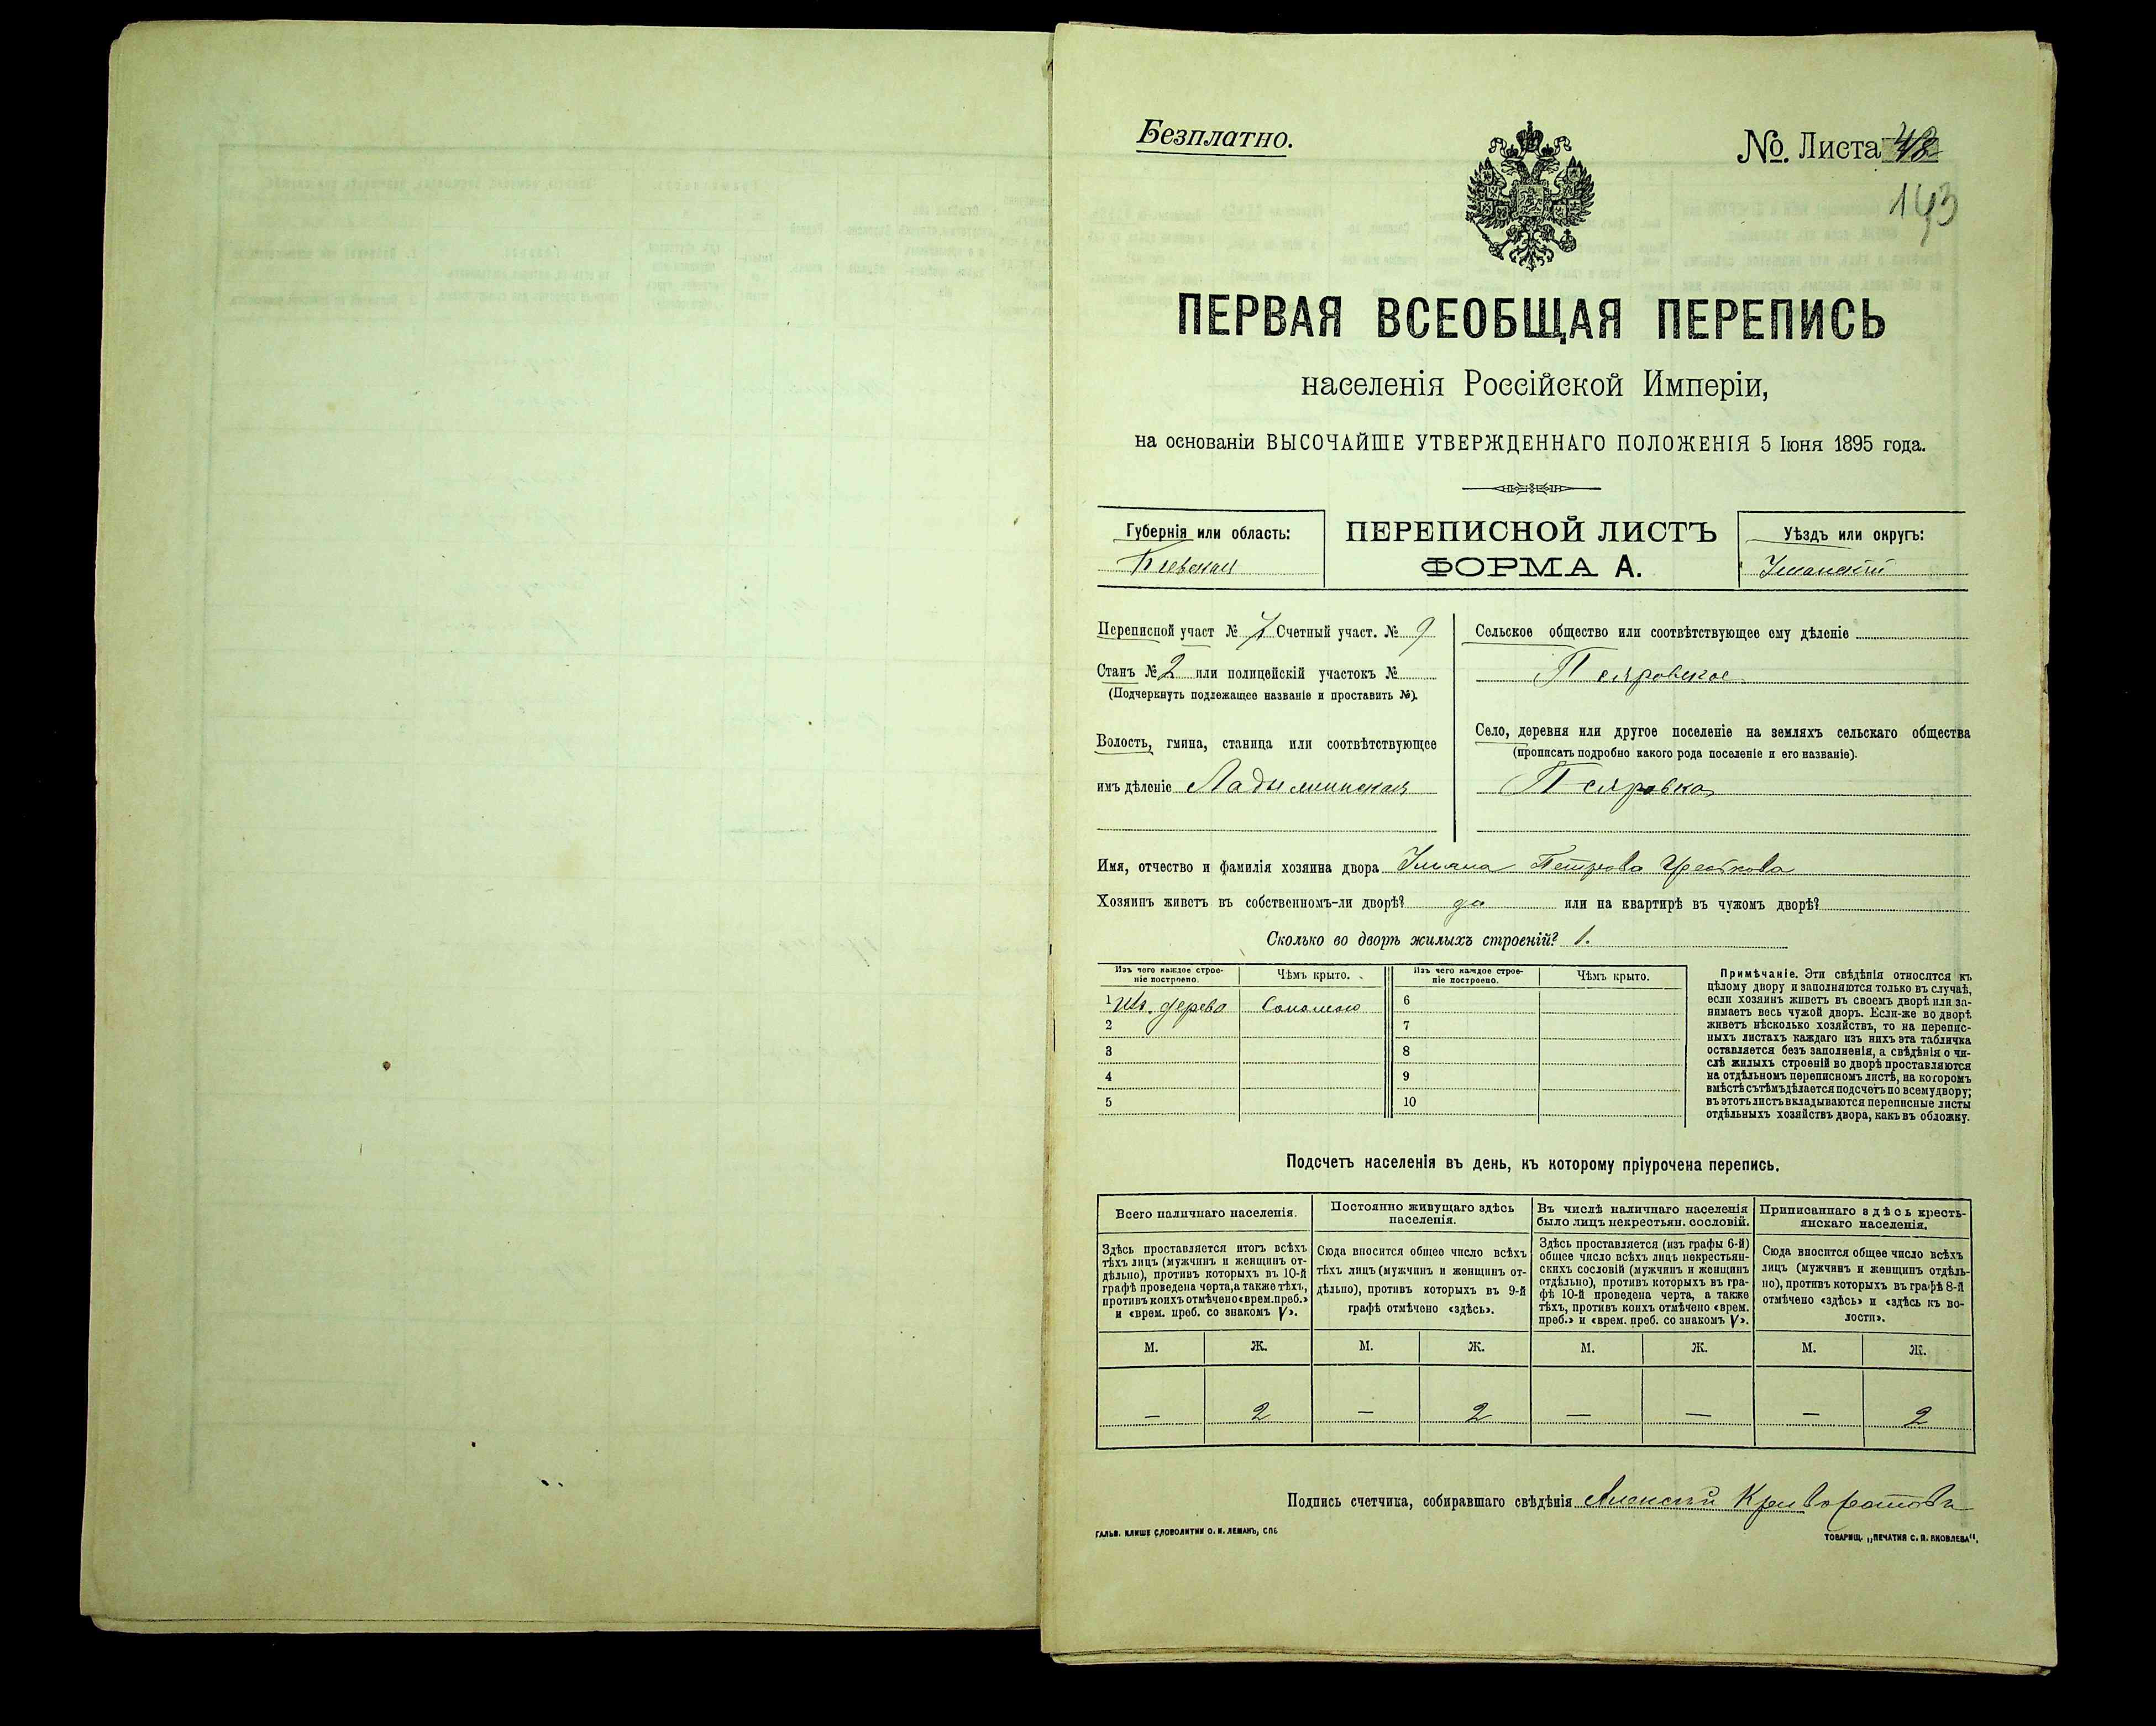 Безплатно.
№ Листа 48
143
ПЕРВАЯ ВСЕОБЩАЯ ПЕРЕПИСЬ
населенія Россійской Имперіи,
на основаніи ВЫСОЧАЙШЕ УТВЕРЖДЕННАГО ПОЛОЖЕНІЯ 5 Іюня 1895 года.
Губернія или область:
Кіевская
ПЕРЕПИСНОЙ ЛИСТЪ
ФОРМА А.
Уѣздъ или округъ:
Уманскій
Переписной участ № 7 Счетный участ. № 9
Станъ № 2 или полицейскій участокъ №
(Подчеркнуть подлежащее названіе и проставить №).
Волость, гмина, станица или соотвѣтствующее
имъ дѣленіе Ладыжинская
Сельское общество или соотвѣтствующее ему дѣленіе
Псяровское
Село, деревня или другое поселеніе на земляхъ сельскаго общества
(прописать подробно какого рода поселеніе и его названіе).
Псяровка
Имя, отчество и фамилія хозяина двора Ульяна Петрова
Хозяинъ живетъ въ собственномъ-ли дворѣ? да или на квартирѣ въ чужомъ дворѣ?
Сколько во дворѣ жилыхъ строеній? 1.
Изъ чего каждое строе-
ніе построено.
Чѣмъ крыто.
Изъ чего каждое строе-
ніе построено.
Чѣмъ крыто.
1 Изъ дерева Соломою
2
3
4
5
6
7
8
9
10
Примѣчаніе. Эти свѣдѣнія относятся къ
цѣлому двору и заполняются только въ случаѣ,
если хозяинъ живетъ въ своемъ дворѣ или за-
нимаетъ весь чужой дворъ. Если-же во дворѣ
живетъ нѣсколько хозяйствъ, то на перепис-
ныхъ листахъ каждаго изъ нихъ эта табличка
оставляется безъ заполненія, а свѣдѣнія о чи-
слѣ жилыхъ строеній во дворѣ проставляются
на отдѣльномъ переписномъ листѣ, на которомъ
вмѣстѣ съ тѣмъ дѣлается подсчетъ по всему двору;
въ этотъ листъ вкладываются переписные листы
отдѣльныхъ хозяйствъ двора, какъ въ обложку.
Подсчетъ населенія въ день, къ которому пріурочена перепись.
Всего наличнаго населенія.
Здѣсь проставляется итогъ всѣхъ
тѣхъ лицъ (мужчинъ и женщинъ от-
дѣльно), противъ которыхъ въ 10-й
графѣ проведена черта, а также тѣхъ,
противъ коихъ отмѣчено «врем. преб.»
и «врем. преб. со знакомъ V».
Постоянно живущаго здѣсь
населенія.
Сюда вносится общее число всѣхъ
тѣхъ лицъ (мужчинъ и женщинъ от-
дѣльно), противъ которыхъ въ 9-й
графѣ отмѣчено «здѣсь».
Въ числѣ наличнаго населенія
было лицъ некрестьян. сословій.
Здѣсь проставляется (изъ графы 6-й)
общее число всѣхъ лицъ некрестьян-
скихъ сословій (мужчинъ и женщинъ
отдѣльно), противъ которыхъ въ гра-
фѣ 10-й проведена черта, а также
тѣхъ, противъ коихъ отмѣчено «врем.
преб.» и «врем. преб. со знакомъ V».
Приписаннаго здѣсь кресть-
янскаго населенія.
Сюда вносится общее число всѣхъ
лицъ (мужчинъ и женщинъ отдѣль-
но), противъ которыхъ въ графѣ 8-й
отмѣчено «здѣсь» и «здѣсь къ во-
лости».
М. Ж. М. Ж. М. Ж. М. Ж.
— 2 — 2 — — — 2
Подпись счетчика, собиравшаго свѣдѣнія Алексѣй
ГАЛЬВ. КЛИШЕ СЛОВОЛИТНИ О. И. ЛЕМАНЪ, СПБ
ТОВАРИЩ. „ПЕЧАТНЯ С. П. ЯКОВЛЕВА“.